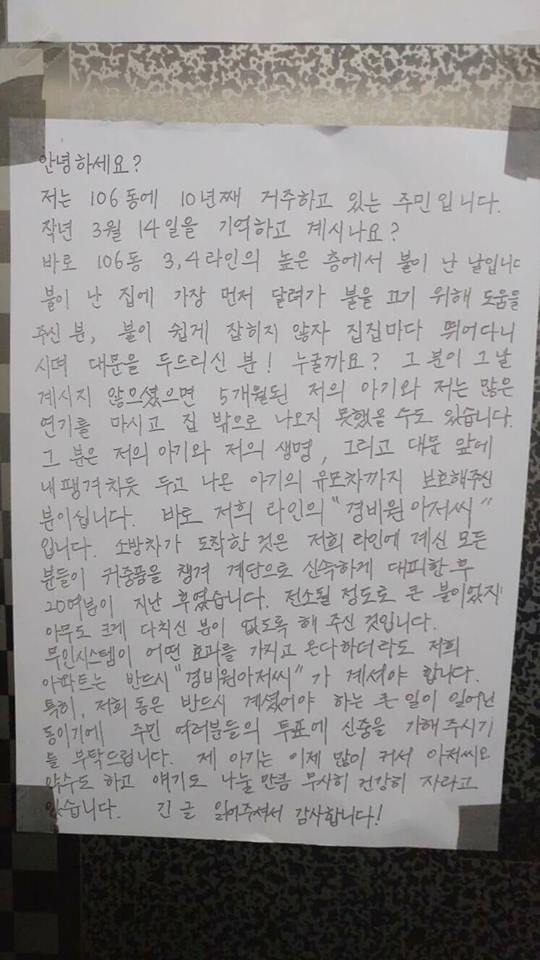 안녕하세요?
저는 106동에 10년째 거주하고 있는 주민입니다.
작년 3월 14일을 기억하고 계시나요?
바로 106동 3,4라인의 높은 층에서 불이 난 날입니다
불이 난 집에 가장 먼저 달려가 불을 끄기 위해 도움을
주신 분, 불이 쉽게 잡히지 않자 집집마다 뛰어다니
시며 대문을 두드리신 분! 누굴까요? 그 분이 그날
계시지 않으셨으면 5개월된 저의 아기와 저는 많은
연기를 마시고 집 밖으로 나오지 못했을 수도 있습니다.
그 분은 저의 아기와 저의 생명, 그리고 대문 앞에
내팽겨치듯 두고 나온 아기의 유모차까지 보호해주신
분이십니다. 바로 저희 라인의 "경비원 아저씨"
입니다. 소방차가 도착한 것은 저희 라인에 계신 모든
분들이 귀중품을 챙겨 계단으로 신속하게 대피한 후
20여분이 지난 후였습니다. 전소될 정도로 큰 불이었지
아무도 크게 다치신 분이 없도록 해 주신 것입니다.
무인시스템이 어떤 효과를 가지고 온다하더라도 저희
아파트는 반드시 "경비원아저씨"가 계셔야 합니다.
특히, 저희 동은 반드시 계셨어야 하는 큰 일이 일어난
동이기에 주민 여러분들의 투표에 신중을 가해주시기
를 부탁드립니다. 제 아기는 이제 많이 커서 아저씨와
악수도 하고 얘기도 나눌 만큼 무사히 건강히 자라고
있습니다. 긴 글 읽어주셔서 감사합니다!